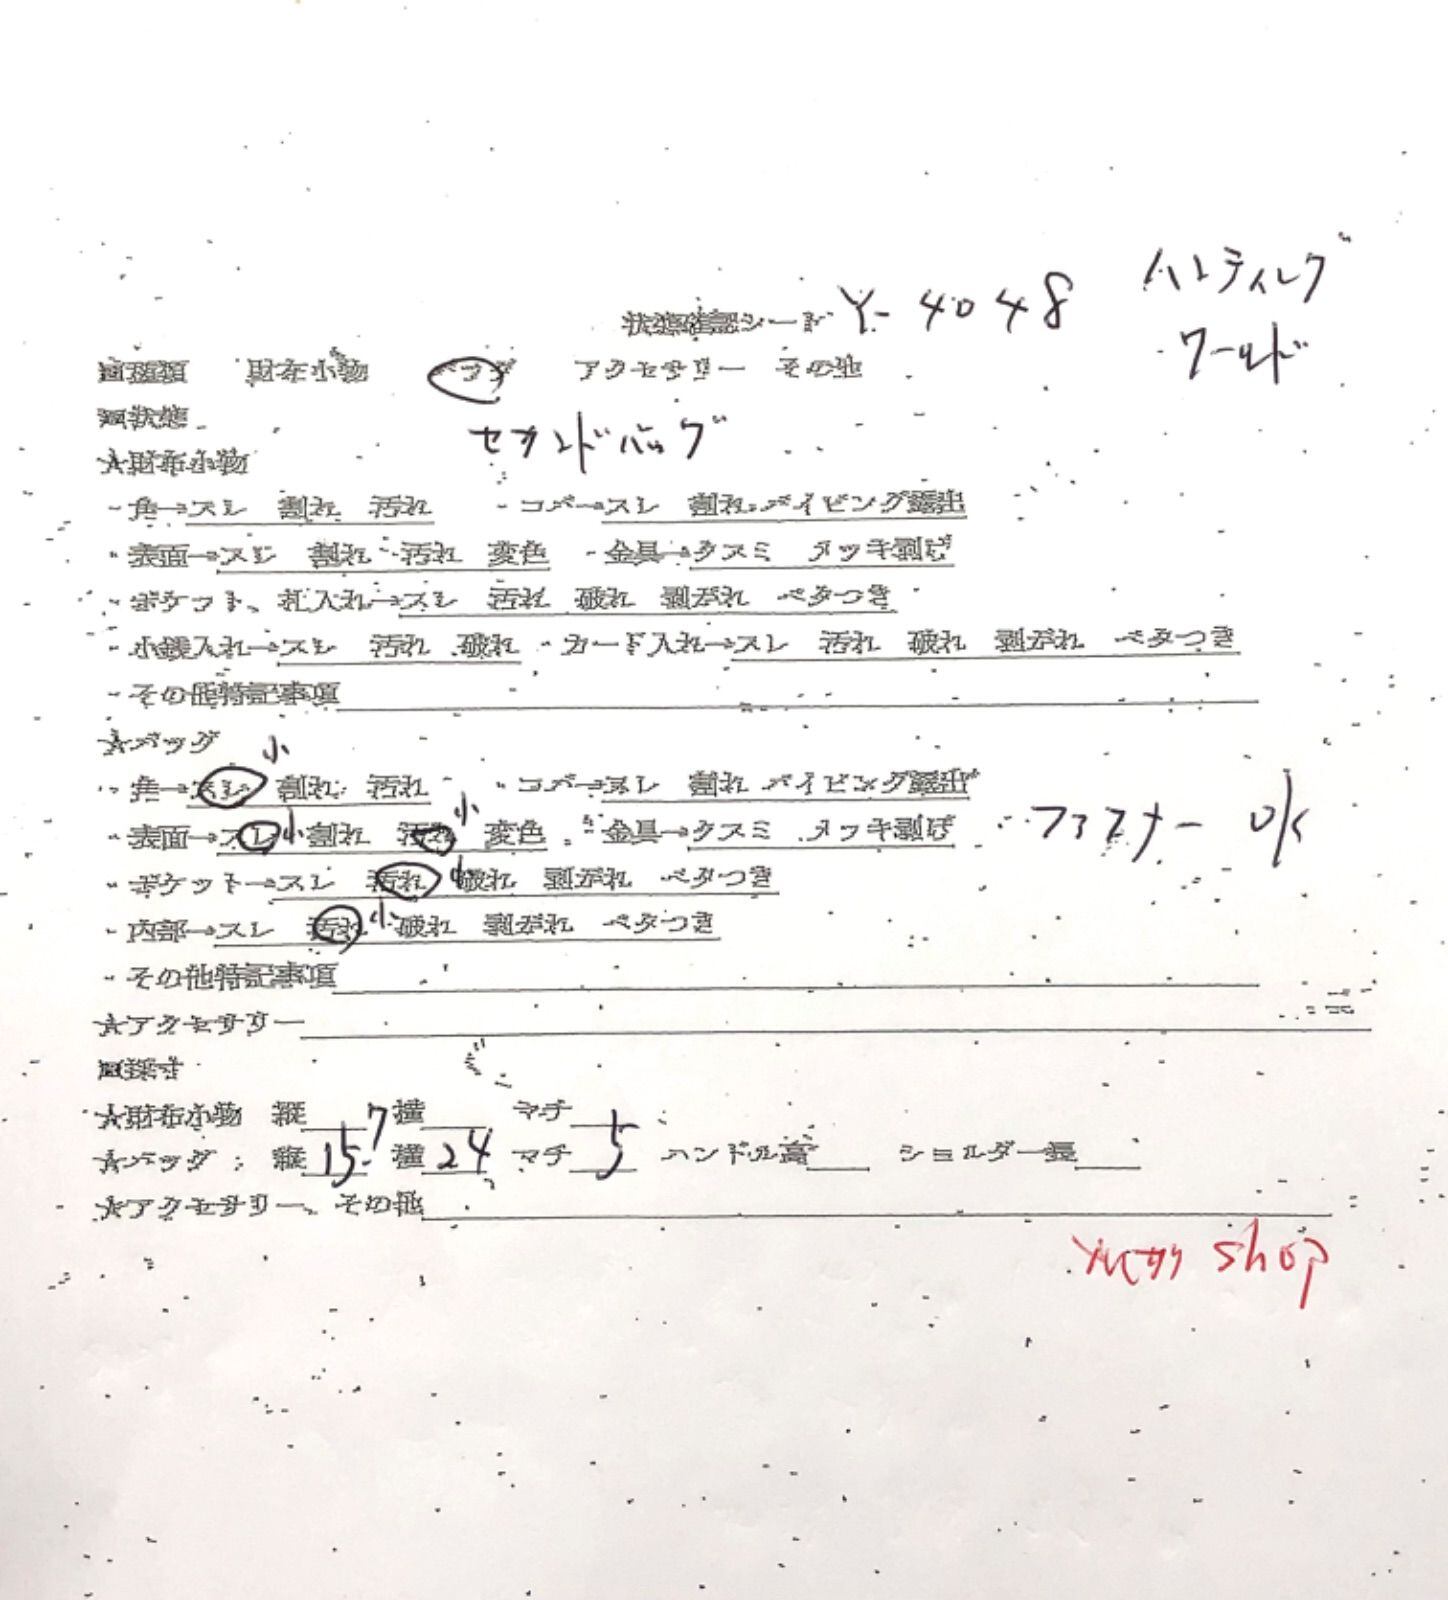 状態確認シート Y-4048 ハンティング
ワールド
■種類 財布小物 バッグ アクセサリー その他
■状態
セカンドバッグ
★財布小物
・角→スレ 割れ 汚れ ・コバ→スレ 割れ パイピング露出
・表面→スレ 割れ 汚れ 変色 ・金具→クスミ メッキ剥げ
・ポケット、札入れ→スレ 汚れ 破れ 剥がれ ベタつき
・小銭入れ→スレ 汚れ 破れ ・カード入れ→スレ 汚れ 破れ 剥がれ ベタつき
・その他特記事項
★バッグ
・角→スレ 小 割れ 汚れ ・コバ→スレ 割れ パイピング露出
・表面→スレ 小 割れ 汚れ 小 変色 ・金具→クスミ メッキ剥げ ファスナー OK
・ポケット→スレ 汚れ 小 破れ 剥がれ ベタつき
・内部→スレ 汚れ 小 破れ 剥がれ ベタつき
・その他特記事項
★アクセサリー
■採寸
★財布小物 縦 横 マチ
★バッグ: 縦 15.7 横 24 マチ 5 ハンドル高 ショルダー長
★アクセサリー、その他
shop